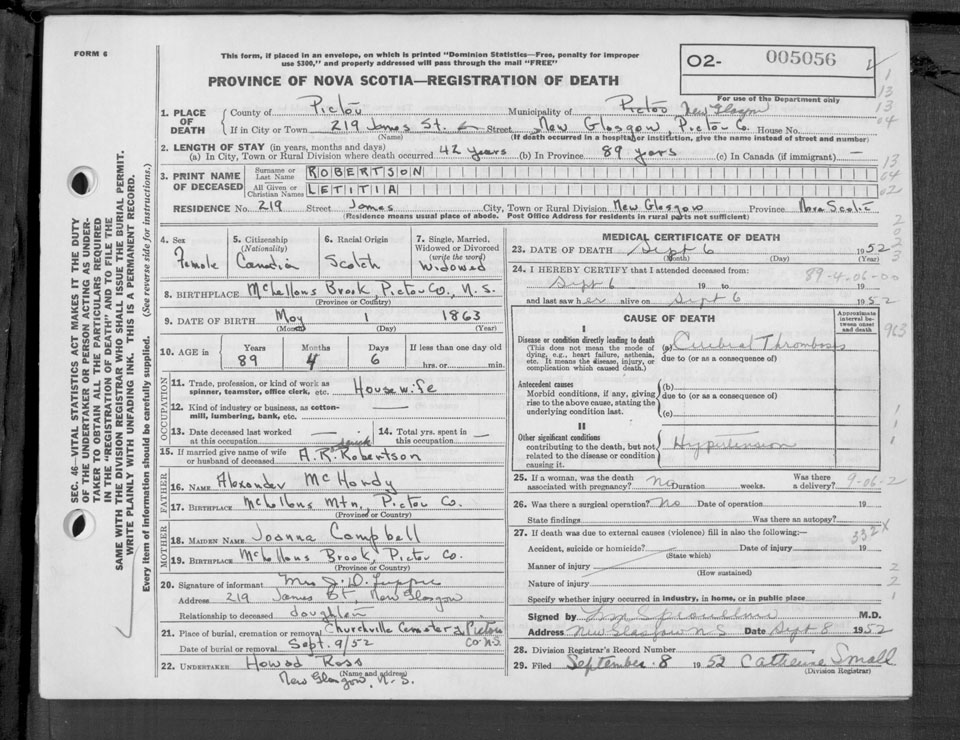 FORM 6
This form, if placed in an envelope, on which is printed "Dominion Statistics—Free, penalty for improper
use $300," and properly addressed will pass through the mail "FREE"
PROVINCE OF NOVA SCOTIA—REGISTRATION OF DEATH
O2- 005056
For use of the Department only
1. PLACE OF DEATH
County of Pictou Municipality of Pictou New Glasgow
If in City or Town 219 James St. Street New Glasgow, Pictou Co. House No.
(Name) (If death occurred in a hospital or institution, give the name instead of street and number)
2. LENGTH OF STAY (in years, months and days)
(a) In City, Town or Rural Division where death occurred 42 years (b) In Province 89 years (c) In Canada (if immigrant) —
3. PRINT NAME OF DECEASED
Surname or Last Name ROBERTSON
All Given or Christian Names LETITIA
RESIDENCE No. 219 Street James City, Town or Rural Division New Glasgow Province Nova Scotia
(Residence means usual place of abode. Post Office Address for residents in rural parts not sufficient)
4. Sex Female
5. Citizenship (Nationality) Canadian
6. Racial Origin Scotch
7. Single, Married, Widowed or Divorced (write the word) Widowed
8. BIRTHPLACE McLellons Brook, Pictou Co., N.S.
(Province or Country)
9. DATE OF BIRTH May 1 1863
(Month) (Day) (Year)
10. AGE in Years 89 Months 4 Days 6 If less than one day old hrs. or min.
OCCUPATION
11. Trade, profession, or kind of work as spinner, teamster, office clerk, etc. Housewife
12. Kind of industry or business, as cotton-mill, lumbering, bank, etc. —
13. Date deceased last worked at this occupation —
14. Total yrs. spent in this occupation —
15. If married give name of wife or husband of deceased A.R. Robertson
FATHER
16. NAME Alexander McHardy
17. BIRTHPLACE McLellons Mtn., Pictou Co.
(Province or Country)
MOTHER
18. MAIDEN NAME Joanna Campbell
19. BIRTHPLACE McLellons Brook, Pictou Co.
(Province or Country)
20. Signature of informant Mrs J. D.
Address 219 James St, New Glasgow
Relationship to deceased daughter
21. Place of burial, cremation or removal Churchville Cemetery Pictou Co N.S.
Date of burial or removal Sept. 9/52
22. UNDERTAKER Howard Ross
(Name and address)
New Glasgow, N.S.
MEDICAL CERTIFICATE OF DEATH
23. DATE OF DEATH Sept 6 1952
(Month) (Day) (Year)
24. I HEREBY CERTIFY that I attended deceased from: 89-4-06-00
Sept 6 19 to 19
and last saw her alive on Sept 6 1952
CAUSE OF DEATH
Approximate interval between onset and death
I
Disease or condition directly leading to death
(This does not mean the mode of dying, e.g., heart failure, asthenia, etc. It means the disease, injury, or complication which caused death.)
(a) Cerebral Thrombosis
due to (or as a consequence of)
Antecedent causes
Morbid conditions, if any, giving rise to the above cause, stating the underlying condition last.
(b)
due to (or as a consequence of)
(c)
II
Other significant conditions
contributing to the death, but not related to the disease or condition causing it.
Hypertension
25. If a woman, was the death associated with pregnancy? No Duration weeks. Was there a delivery? 9-06-2
26. Was there a surgical operation? No Date of operation 19
State findings Was there an autopsy?
27. If death was due to external causes (violence) fill in also the following:— 332X
Accident, suicide or homicide? Date of injury 19
(State which)
Manner of injury
(How sustained)
Nature of injury
Specify whether injury occurred in industry, in home, or in public place
Signed by M.D.
Address New Glasgow N.S Date Sept 8 1952
28. Division Registrar's Record Number
29. Filed September 8 1952 Catherine Small
(Division Registrar)
SEC. 46—VITAL STATISTICS ACT MAKES IT THE DUTY
OF THE UNDERTAKER OR PERSON ACTING AS UNDER-
TAKER TO OBTAIN ALL THE PARTICULARS REQUIRED
IN THE "REGISTRATION OF DEATH" AND TO FILE THE
SAME WITH THE DIVISION REGISTRAR WHO SHALL ISSUE THE BURIAL PERMIT.
WRITE PLAINLY WITH UNFADING INK. THIS IS A PERMANENT RECORD.
Every item of information should be carefully supplied. (See reverse side for instructions.)